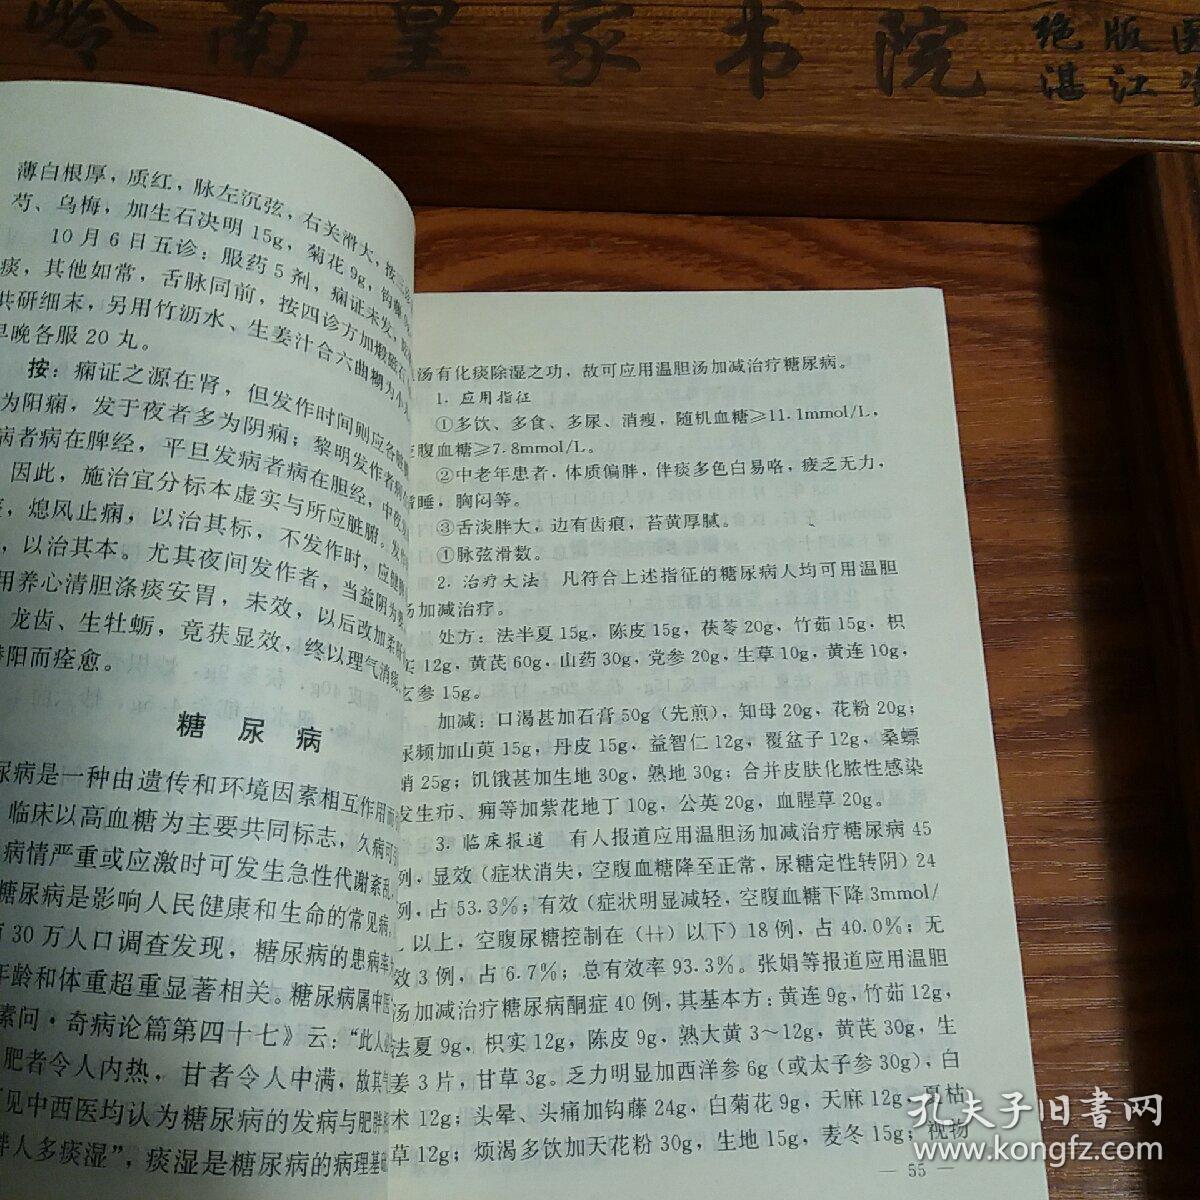 岭南皇家书院
绝版医
湛江
薄白根厚，质红，脉左沉弦，右关滑大，按三诊
芍、乌梅，加生石决明15g，菊花9g，钩藤
10月6日五诊：服药5剂，痫证未发，
痰，其他如常，舌脉同前，按四诊方加煅磁石
共研细末，另用竹沥水、生姜汁合六曲糊为小丸
早晚各服20丸。
按：痫证之源在肾，但发作时间则应各脏腑
为阳痫，发于夜者多为阴痫；黎明发作者病
病者病在脾经，平旦发病者病在胆经，中夜
因此，施治宜分标本虚实与所应脏腑。发作
，熄风止痫，以治其标，不发作时，应健脾
，以治其本。尤其夜间发作者，当益阴为
用养心清胆涤痰安胃，未效，以后改加柔肝
龙齿、生牡蛎，竟获显效，终以理气消痰
阳而痊愈。
糖尿病
尿病是一种由遗传和环境因素相互作用而
临床以高血糖为主要共同标志，久病可引
病情严重或应激时可发生急性代谢紊乱
糖尿病是影响人民健康和生命的常见病，
30万人口调查发现，糖尿病的患病率
年龄和体重超重显著相关。糖尿病属中医
素问·奇病论篇第四十七》云：“此人必
肥者令人内热，甘者令人中满，故其气
见中西医均认为糖尿病的发病与肥胖
胖人多痰湿”，痰湿是糖尿病的病理基础
汤有化痰除湿之功，故可应用温胆汤加减治疗糖尿病。
1. 应用指征
①多饮、多食、多尿、消瘦，随机血糖≥11.1mmol/L，
空腹血糖≥7.8mmol/L。
②中老年患者，体质偏胖，伴痰多色白易咯，疲乏无力，
嗜睡，胸闷等。
③舌淡胖大，边有齿痕，苔黄厚腻。
①脉弦滑数。
2. 治疗大法 凡符合上述指征的糖尿病人均可用温胆
汤加减治疗。
处方：法半夏15g，陈皮15g，茯苓20g，竹茹15g，枳
实12g，黄芪60g，山药30g，党参20g，生草10g，黄连10g，
玄参15g。
加减：口渴甚加石膏50g（先煎），知母20g，花粉20g；
尿频加山萸15g，丹皮15g，益智仁12g，覆盆子12g，桑螵
蛸25g；饥饿甚加生地30g，熟地30g；合并皮肤化脓性感染
发生疖、痈等加紫花地丁10g，公英20g，血腥草20g。
3. 临床报道 有人报道应用温胆汤加减治疗糖尿病45
例，显效（症状消失，空腹血糖降至正常，尿糖定性转阴）24
例，占53.3%；有效（症状明显减轻，空腹血糖下降3mmol/
L以上，空腹尿糖控制在（++）以下）18例，占40.0%；无
效3例，占6.7%；总有效率93.3%。张娟等报道应用温胆
汤加减治疗糖尿病酮症40例，其基本方：黄连9g，竹茹12g，
法夏9g，枳实12g，陈皮9g，熟大黄3～12g，黄芪30g，生
姜3片，甘草3g。乏力明显加西洋参6g（或太子参30g），白
术12g；头晕、头痛加钩藤24g，白菊花9g，天麻12g，夏枯
草12g；烦渴多饮加天花粉30g，生地15g，麦冬15g；视物
— 55 —
孔夫子旧书网
www.kongfz.com